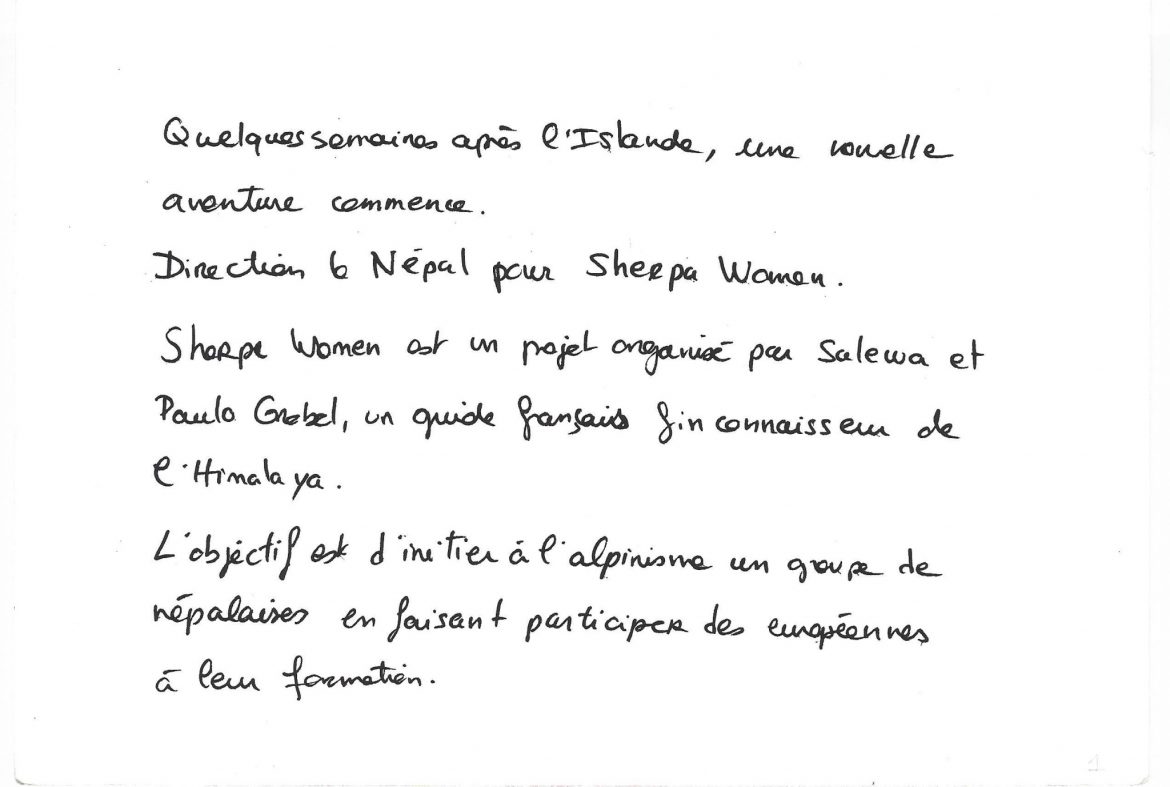 Quelques semaines après l'Islande, une nouvelle
aventure commence.
Direction le Népal pour Sherpa Women.
Sherpa Women est un projet organisé par Salewa et
Paulo Grobel, un guide français fin connaisseur de
l'Himalaya.
L'objéctif est d'initier à l'alpinisme un groupe de
népalaises en faisant participer des européennes
à leur formation.
1